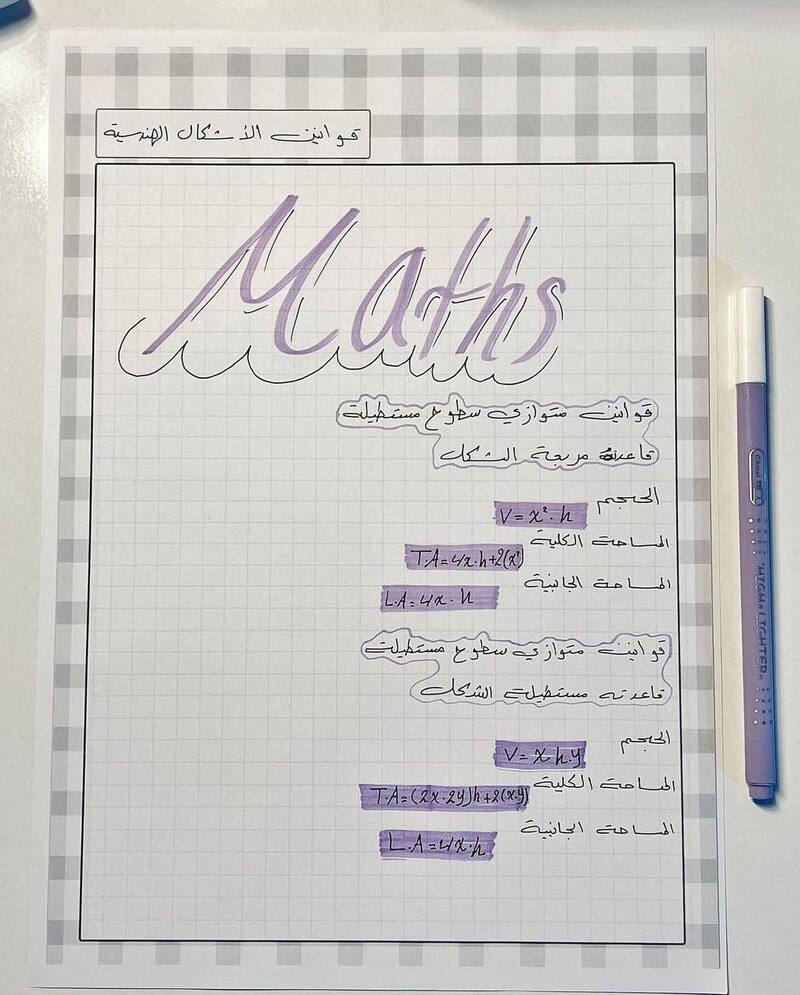 قوانين الأشكال الهندسية
Maths
قوانين متوازي سطوح مستطيلة
قاعدته مربعة الشكل
الحجم
V = x². h
المساحة الكلية
T.A=4x.h+2(x²)
المساحة الجانبية
L.A=4x. h
قوانين متوازي سطوح مستطيلة
قاعدته مستطيلة الشكل
الحجم
V= x.h.y
المساحة الكلية
T.A=(2x.2y)h+2(x.y)
المساحة الجانبية
L.A=4x.h
HIGH-LIGHTER